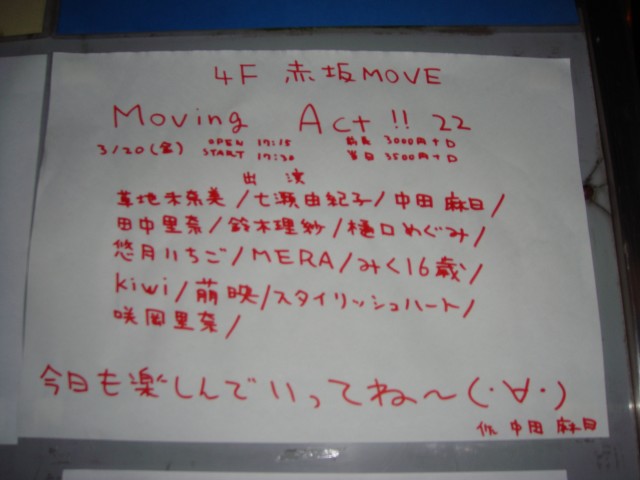 4F 赤坂MOVE
Moving Act !! 22
3/20(金) OPEN 17:15 前売 3000円+D
START 17:30 当日 3500円+D
出演
草地未奈美/七瀬由紀子/中田 麻日/
田中里奈/鈴木理紗/樋口めぐみ/
悠月いちご/MERA/みく16歳/
kiwi/萌映/スタイリッシュハート/
咲岡里奈/
今日も楽しんでいってね〜(・∀・)
作 中田 麻日